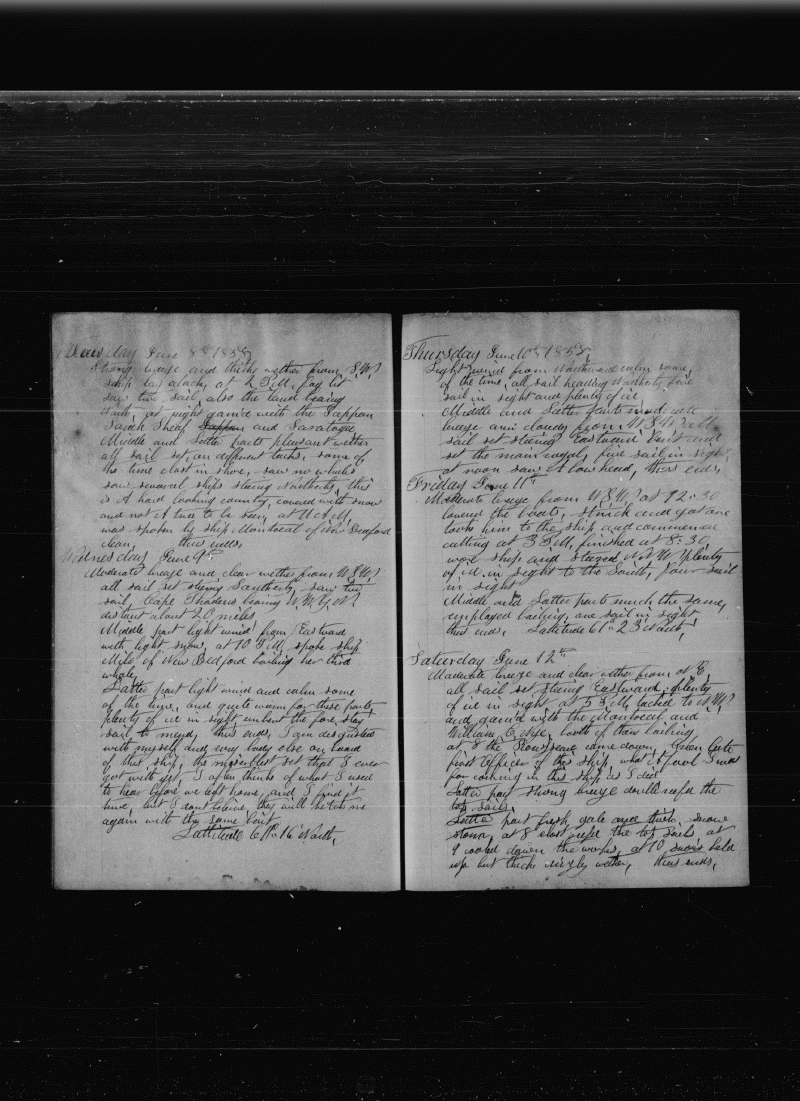 Tuesday June 8th 1858,
Strong breeze and thicky wether from S.W,
ship lay aback, at 2 P.M. fog lit
saw two sail, also the land bearing
North, at night gam'd with the Jappan
Sarah Sheaf Jappan and Saratogue
Middle and Latter parts pleasant wether
all sail set, on different tacks, some of
the time close in shore, saw no whales
saw several ships steering Northerly, this
is A hard looking country, covered with snow
and not A tree to be seen, at 11 A.M,
was spoken by ship Montocal of New Beaford
clean, thus ends,
Wednesday June 9th
Moderate breeze and clear wether from W.S.W,
all sail set steering Southerly, saw two
sail, Cape Thadeus bearing W.N.W,
distant about 20 miles
Middle part light wind from Eastward
with light snow, at 10 P.M, spoke ship
Milo of New Bedford boiling her third
whale,
Latter part light wind and calm some
of the time, and quite warm for these parts
plenty of ice in sight, unbent the fore stay
sail to mend, thus ends, I am disgusted
with myself and every body else on board
of this ship, the miserblest set that I ever
got with yet, I often thinks of what I used
to hear before we left home, and I find it
true, but I dont beleive, they will ketch me
again with the same bait
Lattitude 61° 16 North,
Thursday June 10th 1858,
Light wind from Northward calm some,
of the time, all sail heading Northerly five
sail in sight and plenty of ice
Middle and Latter parts moderate
breeze and cloudy from W.S.W all
sail set steering Eastward bent and
set the main royal, five sail in sight,
at noon saw A bowhead, thus ends,
Friday June 11th
Moderate breeze from W.S.W, at 12.30
lowered the boats, struck and got one
took him to the ship and commenced
cutting at 3 P.M, finished at 8.30,
wore ship and steered N.N.W plenty
of ice in sight to the South, four sail
in sight
Middle and Latter parts much the same,
employed boiling, one sail in sight
thus ends, Lattitude 61° 23 North,
Saturday June 12th
Moderate breeze and clear wether from N.E,
all sail set steering Eastward, plenty
of ice in sight, at 5 P.M, tacked to N.W,
and gam'd with the Montocal and
William C. Nye, both of them boiling
at 8 the Rousseau came down, Green late
first Officer of this ship, what A fool I was
for coming in this ship as I did
Latter part strong breeze double reefd the
top sails,
Latter part fresh gale and thick snow
storm, at 8 close reefd the top sails, at
9 cooled down the works, at 10 snow held
up but thick rugly wether, thus ends,